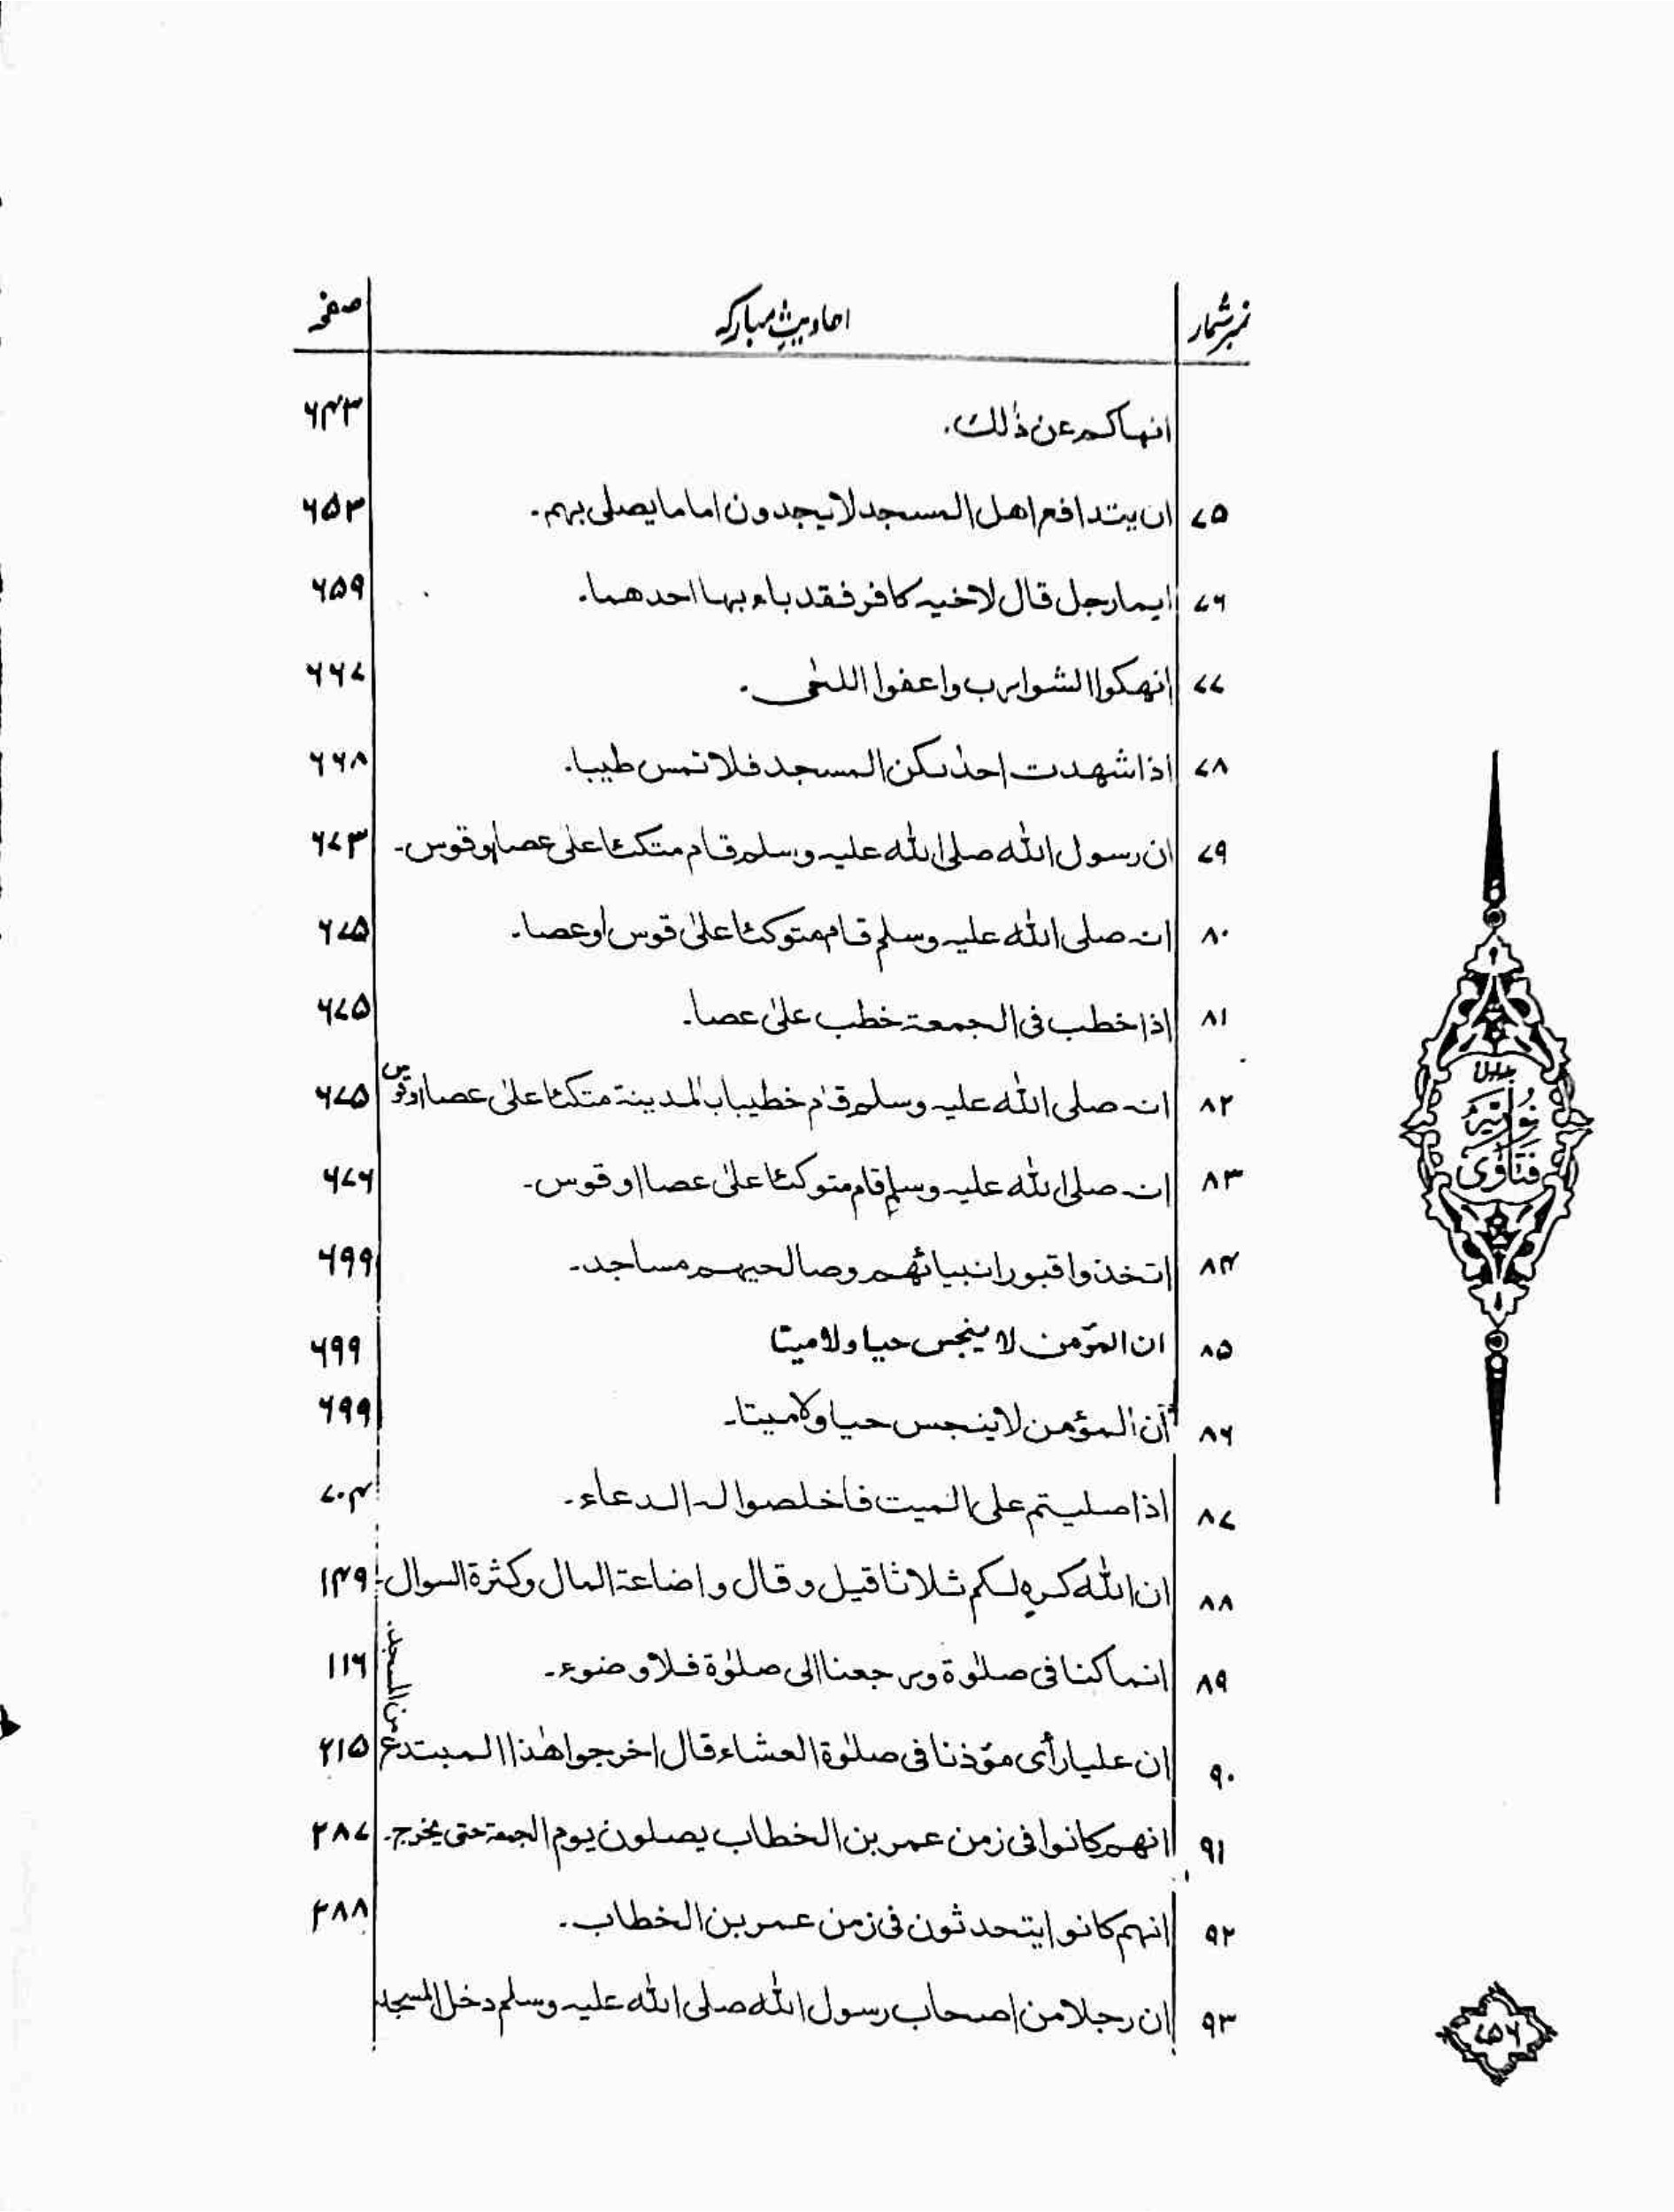 نمبر شمار احادیثِ مبارکہ صفحہ
انہاکم عن ذٰلک۔ ۶۴۳
۷۵ ان یتدافع اھل المسجد لا یجدون اماما یصلی بہم۔ ۶۵۳
۷۶ ایما رجل قال لاخیہ کافر فقد باء بہا احدھما۔ ۶۵۹
۷۷ انھکوا الشوارب واعفوا اللحٰی۔ ۶۶۷
۷۸ اذا شھدت احدٰیکن المسجد فلا تمس طیبا۔ ۶۶۸
۷۹ ان رسول اللہ صلی اللہ علیہ وسلم قام متکئا علٰی عصا او قوس۔ ۶۷۳
۸۰ انہ صلی اللہ علیہ وسلم قام متوکئا علیٰ قوس او عصا۔ ۶۷۵
۸۱ اذا خطب فی الجمعۃ خطب علیٰ عصا۔ ۶۷۵
۸۲ انہ صلی اللہ علیہ وسلم قام خطیبا بالمدینۃ متکئا علیٰ عصا اوقوس ۶۷۵
۸۳ انہ صلی اللہ علیہ وسلم قام متوکئا علیٰ عصا او قوس۔ ۶۷۶
۸۴ اتخذوا قبور انبیائھم وصالحیہم مساجد۔ ۶۹۹
۸۵ ان المؤمن لا ینجس حیا ولا میتا ۶۹۹
۸۶ ان المؤمن لا ینجس حیا ولا میتا۔ ۶۹۹
۸۷ اذا صلیتم علی المیت فاخلصوا لہ الدعاء۔ ۷۰۴
۸۸ ان اللہ کرہ لکم ثلاثا قیل وقال واضاعۃ المال وکثرۃ السوال۔ ۱۴۹
۸۹ انما کنا فی صلٰوۃ ورجعنا الی صلٰوۃ فلا وضوء۔ ۱۱۶
۹۰ ان علیا رأی مؤذنا فی صلٰوۃ العشاء قال اخرجوا ھٰذا المبتدع من المسجد۔ ۲۱۵
۹۱ انھم کانوا فی زمن عمر بن الخطاب یصلون یوم الجمعۃ حتی یخرج۔ ۲۸۷
۹۲ انہم کانوا یتحدثون فی زمن عمر بن الخطاب۔ ۲۸۸
۹۳ ان رجلا من اصحاب رسول اللہ صلی اللہ علیہ وسلم دخل المسجد
فتاوٰی نوریّہ
۷۵۶